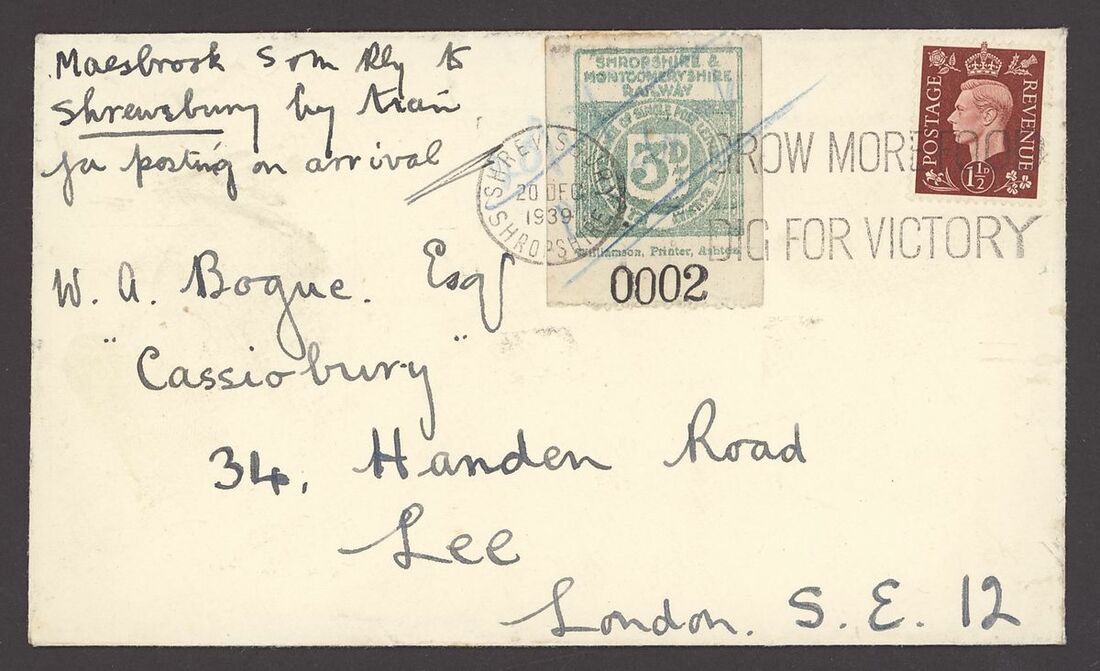 Maesbrook S&M Rly to
Shrewsbury by train
for posting on arrival
SHROPSHIRE &
MONTGOMERYSHIRE
RAILWAY
3D
Williamson, Printer, Ashton
0002
SHREWSBURY
20 DEC
1939
SHROPSHIRE
GROW MORE FOOD
DIG FOR VICTORY
POSTAGE
REVENUE
1½D
W. A. Bogue. Esq
"Cassiobury"
34, Handen Road
Lee
London. S. E. 12